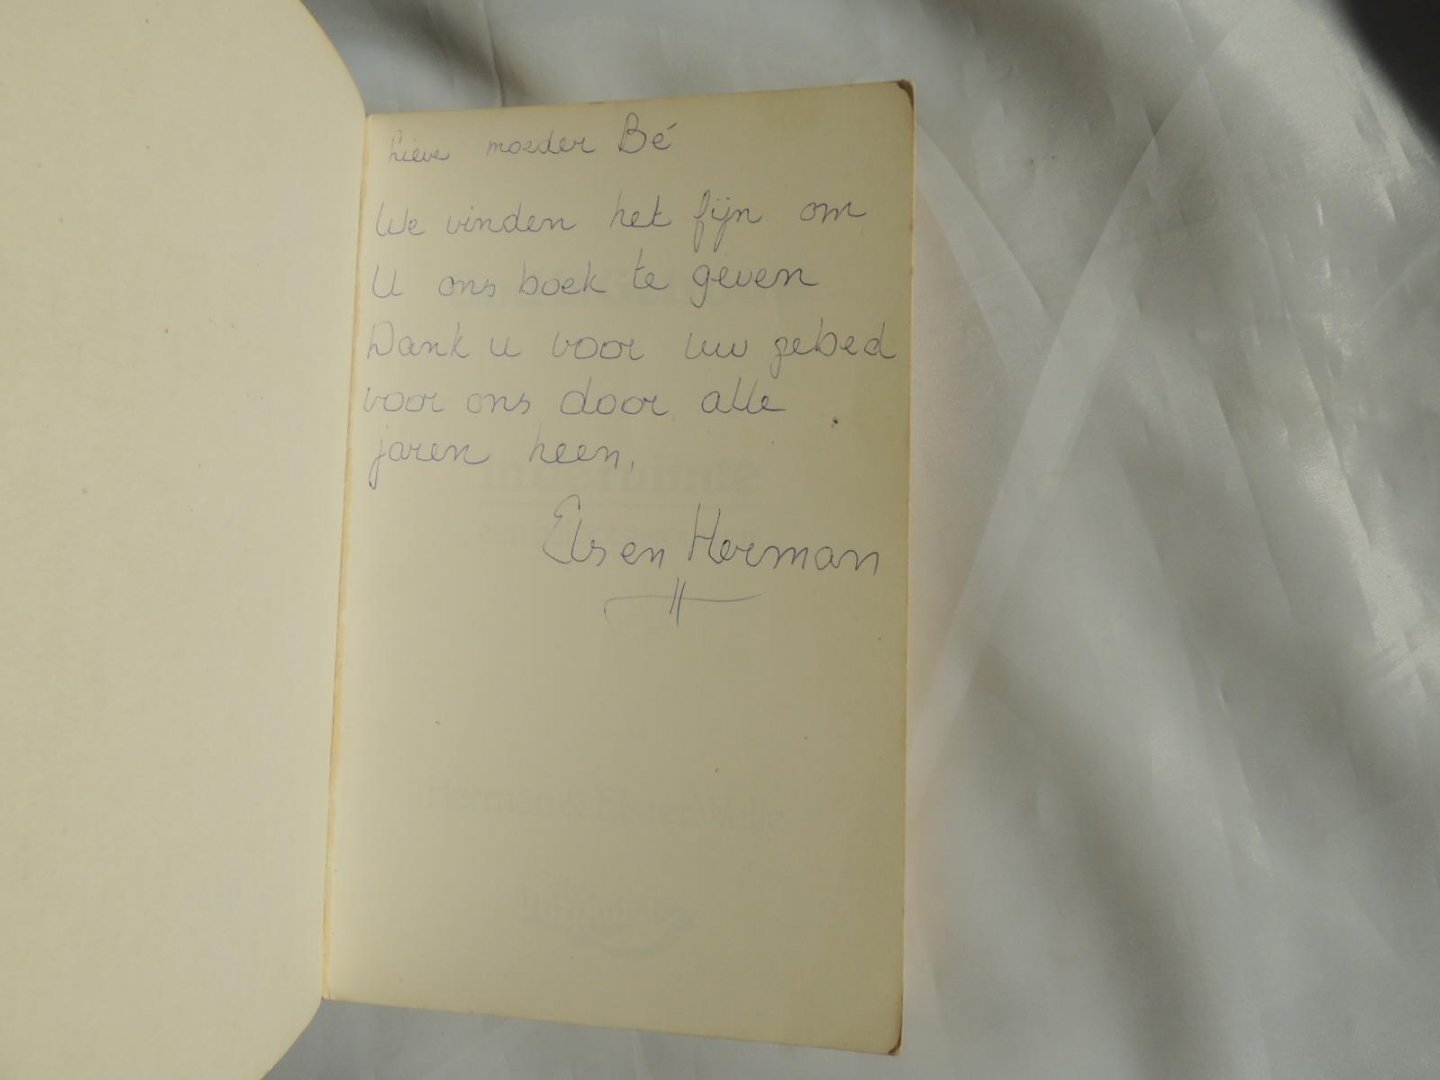 Lieve moeder Bé
We vinden het fijn om
U ons boek te geven
Dank u voor uw gebed
voor ons door alle
jaren heen.
Els en Herman